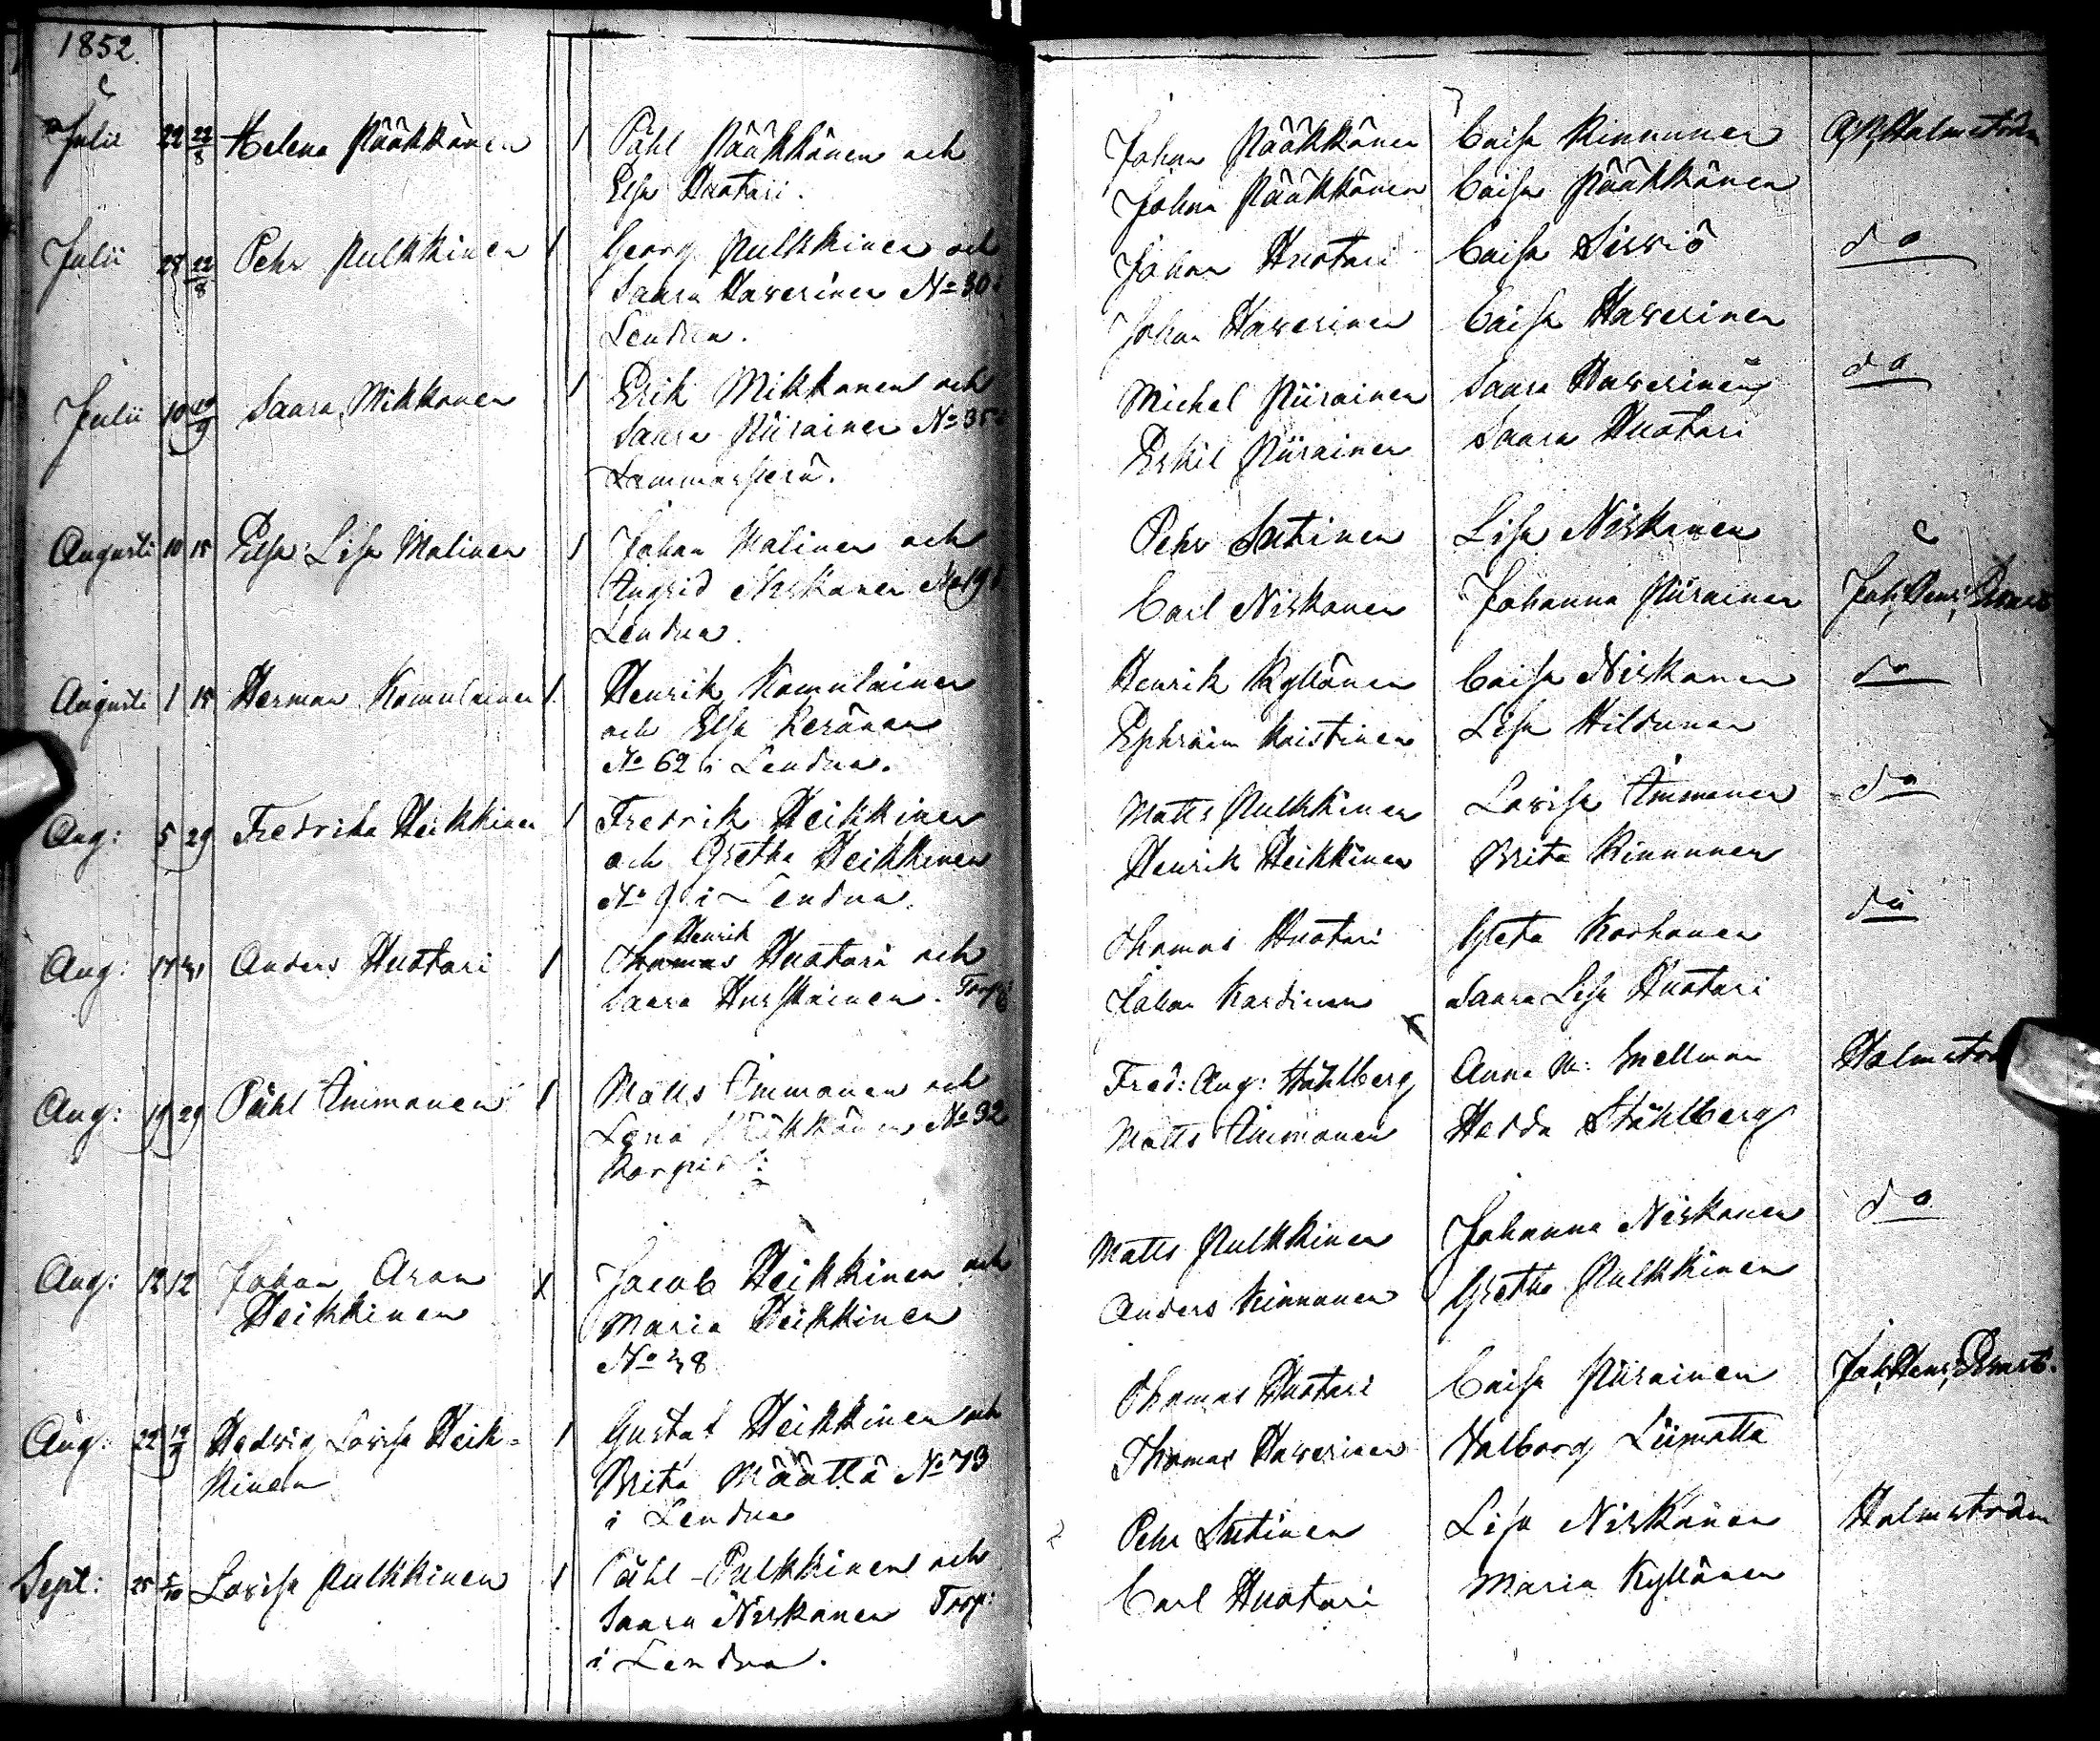 1852
Julii 22 22/8 Helena Pääkkönen 1 Påhl Pääkkönen och
Elsa Huotari.
Julii 28 22/8 Pehr Pulkkinen 1 Georg Pulkkinen och
Saara Haverinen No 30 i
Lendua.
Julii 10 19/9 Saara Mikkonen 1 Erik Mikkonen och
Saara Piirainen No 35 i
Lammasperä.
Augusti 10 15 Elsa Lisa Malinen 1 Johan Malinen och
Ingrid Niskanen No 19 i
Lendua.
Augusti 1 15 Herman Komulainen 1. Henrik Komulainen
och Elsa Keränen
No 62 i Lendua.
Aug: 5 29 Fredrika Heikkinen 1 Fredrik Heikkinen
och Gretha Heikkinen
No 9 i Lendua.
Henrik
Aug: 17 31 Anders Huotari 1 Thomas Huotari och
Saara Hurskainen. Torp:
Aug: 19 29 Påhl Immonen 1 Matts Immonen och
Lena No 32
Aug: 12 12 Johan Aron X Jacob Heikkinen och
Heikkinen Maria Heikkinen
No 38
Aug: 22 12/9 Hedvig Lovisa Heik- 1 Gustaf Heikkinen och
kinen Brita Määttä No 73
i Lendua
Sept: 25 5/10 Lovisa Pulkkinen 1 Påhl Pulkkinen och
Saara Niskanen Torp:
i Lendua.
Johan Pääkkönen Caisa Kinnunen Holmström
Johan Pääkkönen Caisa Pääkkönen
Johan Huotari Caisa Sirviö do
Johan Haverinen Caisa Haverinen
Michel Piirainen Saara Haverinen do
Eskil Piirainen Saara Huotari
Pehr Sutinen Lisa Niskanen
Carl Niskanen Johanna Piirainen Joh, Henr,
Henrik Kyllönen Caisa Niskanen do
Ephraim Kaistinen Lisa Hildunen
Matts Pulkkinen Lovisa Immonen do
Henrik Heikkinen Brita Kinnunen
Thomas Huotari Greta Korhonen do
Johan Kardinen Saara Lisa Huotari
Fred: Aug: Ståhlberg Anna M: Snellman Holmström
Matts Immonen Hedda Ståhlberg
Matts Pulkkinen Johanna Niskanen do
Anders Kinnunen Gretha Pulkkinen
Thomas Huotari Caisa Piirainen Joh, Henr,
Thomas Haverinen Valborg Liimatta
Pehr Sutinen Lisa Niskanen Holmström
Carl Huotari Maria Kyllönen